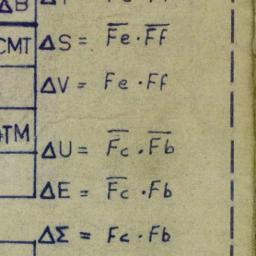 ΔB
CMT ΔS = F̅e̅ · F̅f̅
ΔV = Fe · Ff
TM ΔU = F̅c̅ · F̅b̅
ΔE = F̅c̅ · Fb
ΔΣ = Fc · Fb